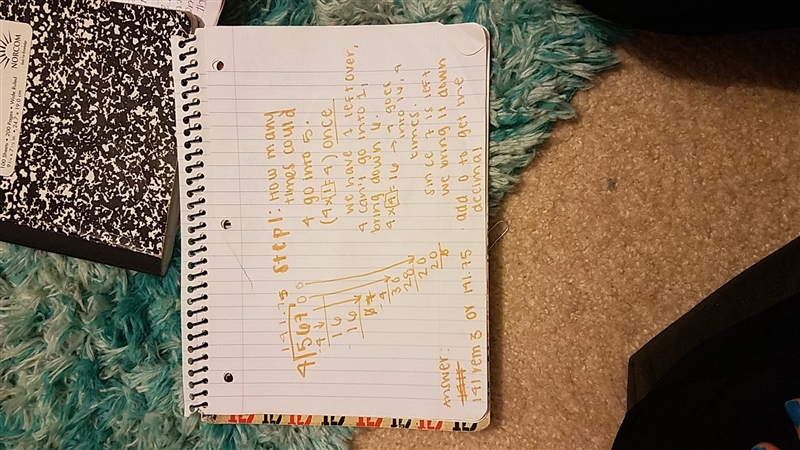 NORCOM
100 Sheets • 200 Pages • Wide Ruled
9¾ x 7½ in • 24.7 x 19.0 cm
141.75
4|567 00
4
16
16
4
30
28
20
20
0
Step 1: How many
times could
4 go into 5.
(4x1=4) once
we have 1 left over,
4 can't go into 1,
bring down 6.
4x4=16 → 4 goes
into 16, 4
times.
since 7 is left
we bring it down
add 0 to get the
decimal
answer:
141 rem 3 or 141.75